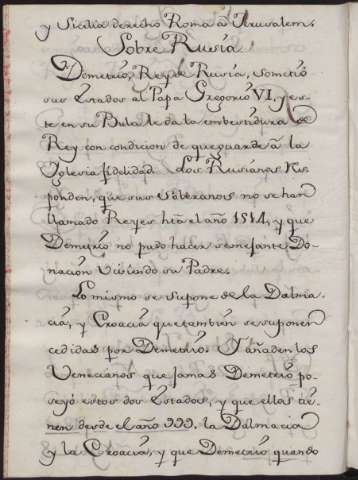 y Sicilia derecho Roma a Jerusalem.
Sobre Rusia
Demetrio, Rey de Rusia, sometió
sus Estados al Papa Gregorio VI, y es-
te en su Bula le da la embestidura de
Rey con condicion de que guarde à la
Iglesia fidelidad. Los Rusianos res-
ponden, que sus Soberanos no se han
llamado Reyes hta el año 1514, y que
Demetrio no pudo hacer semejante Do-
nacion viviendo su Padre.
Lo mismo se supone de la Dalma-
cia, y Croacia que tambien se suponen
cedidas por Demetrio. Y añaden los
Venecianos que jamas Demetrio po-
seyó estos dos Estados, y que ellos tie-
nen desde el año 999. la Dalmacia
y la Croacia, y que Demetrio quando